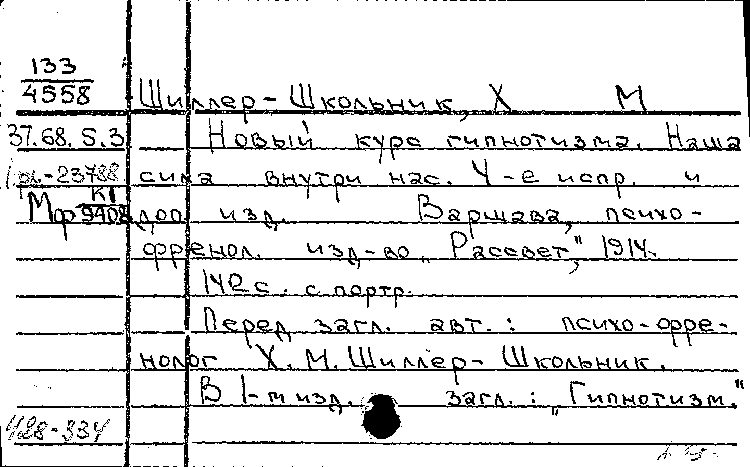 133
4558
Шиллер-Школьник, Х М
37.68.5.3 Новый курс гипнотизма. Наша
сила внутри нас. 4-е испр. и
Мф К1 9408 доп. изд. Варшава, психо-
френол. изд-во "Рассвет", 1914.
142с. с портр.
Перед загл. авт.: психо-фре-
нолог Х. М. Шиллер-Школьник.
В 1-м изд. загл.: "Гипнотизм."
428-334